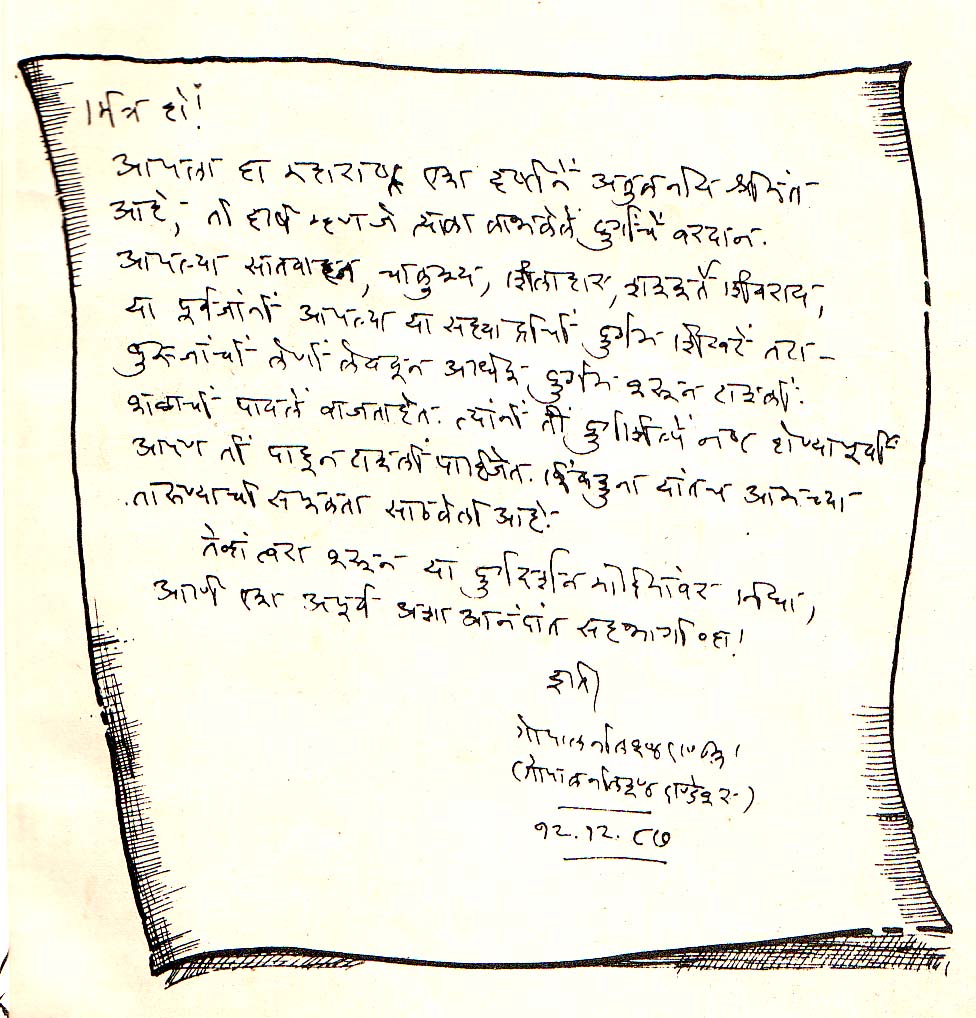 मित्र हो!
आपला हा महाराष्ट्र एका दृष्टीनें अतुलनीय श्रीमंत
आहे, ती दृष्टि म्हणजे त्याला लाभलेलें दुर्गांचें वरदान.
आपल्या सातवाहन, चालुक्य, शिलाहार, शिवराय,
या पूर्वजांनीं आपल्या या सह्याद्रीचीं दुर्गम शिखरें तटा-
बुरुजांचीं लेणीं लेववून आणखी दुर्गम करून टाकलीं.
काळाचीं पावलें वाजताहेत. त्यांनीं तीं दुर्गशिल्पें नष्ट होण्यापूर्वी
आपण तीं पाहून टाकलीं पाहिजेत. किंबहुना यांतच आमच्या
तारुण्याची सफलता सांठवली आहे.
तेव्हां त्वरा करून या दुर्गदर्शन मोहिमांवर निघा,
आणि एका अपूर्व अशा आनंदांत सहभागी व्हा!
इति
गोपाल नीलकण्ठ दाण्डेकर
(गोपाल नीलकण्ठ दाण्डेकर)
१२.१२.८७